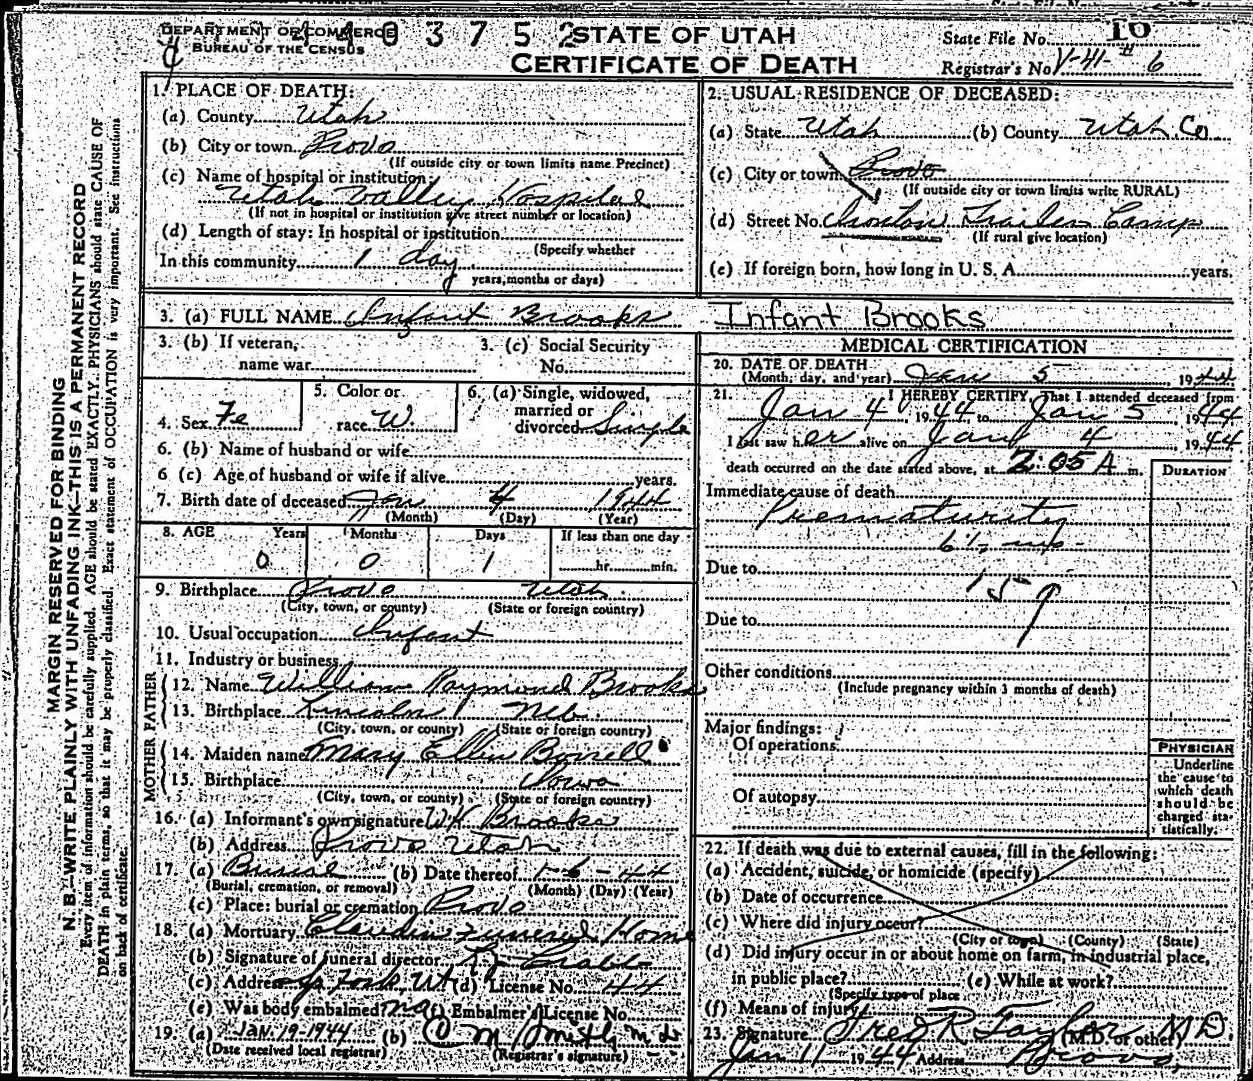 DEPARTMENT OF COMMERCE
BUREAU OF THE CENSUS
0 3 7 5 2
STATE OF UTAH
CERTIFICATE OF DEATH
State File No. 10
Registrar's No. V-41-#6
MARGIN RESERVED FOR BINDING
N. B.—WRITE PLAINLY WITH UNFADING INK—THIS IS A PERMANENT RECORD
Every item of information should be carefully supplied. AGE should be stated EXACTLY. PHYSICIANS should state CAUSE OF
DEATH in plain terms, so that it may be properly classified. Exact statement of OCCUPATION is very important. See instructions
on back of certificate.
1. PLACE OF DEATH:
(a) County Utah
(b) City or town Provo
(If outside city or town limits name Precinct)
(c) Name of hospital or institution:
Utah Valley Hospital
(If not in hospital or institution give street number or location)
(d) Length of stay: In hospital or institution
(Specify whether
In this community 1 day
years, months or days)
2. USUAL RESIDENCE OF DECEASED:
(a) State Utah (b) County Utah Co
(c) City or town Provo
(If outside city or town limits write RURAL)
(d) Street No. Trailer Camp
(If rural give location)
(e) If foreign born, how long in U. S. A. years.
3. (a) FULL NAME Infant Brooks Infant Brooks
3. (b) If veteran,
name war
3. (c) Social Security
No.
4. Sex Fe
5. Color or
race W.
6. (a) Single, widowed,
married or
divorced Single
6. (b) Name of husband or wife
6 (c) Age of husband or wife if alive years.
7. Birth date of deceased Jan 4 1944
(Month) (Day) (Year)
8. AGE Years Months Days If less than one day
0 0 1 hr. min.
9. Birthplace Provo Utah
(City, town, or county) (State or foreign country)
10. Usual occupation Infant
11. Industry or business
FATHER
12. Name William Raymond Brooks
13. Birthplace Lincoln Neb.
(City, town, or county) (State or foreign country)
MOTHER
14. Maiden name Mary Ellen
15. Birthplace Iowa
(City, town, or county) (State or foreign country)
16. (a) Informant's own signature Brooks
(b) Address Provo Utah
17. (a) Burial (b) Date thereof 1-6-44
(Burial, cremation, or removal) (Month) (Day) (Year)
(c) Place: burial or cremation Provo
18. (a) Mortuary Claudin Funeral Home
(b) Signature of funeral director
(c) Address Sp. Fork, Ut (d) License No. 44
(e) Was body embalmed no (f) Embalmer's License No.
19. (a) Jan. 19-1944 (b) C M Smith M.D.
(Date received local registrar) (Registrar's signature)
MEDICAL CERTIFICATION
20. DATE OF DEATH
(Month, day, and year) Jan 5 1944
21. I HEREBY CERTIFY, That I attended deceased from
Jan 4, 1944, to Jan 5 1944
I last saw her alive on Jan 4 1944
death occurred on the date stated above, at 2:05 A m.
DURATION
Immediate cause of death
Prematurity
6½ mo-
Due to
159
Due to
Other conditions
(Include pregnancy within 3 months of death)
Major findings:
Of operations
Of autopsy
PHYSICIAN
Underline
the cause to
which death
should be
charged sta-
tistically.
22. If death was due to external causes, fill in the following:
(a) Accident, suicide, or homicide (specify)
(b) Date of occurrence
(c) Where did injury occur?
(City or town) (County) (State)
(d) Did injury occur in or about home on farm, in industrial place,
in public place? (e) While at work?
(Specify type of place
(f) Means of injury
23. Signature Fred R Taylor MD
(M.D. or other)
Jan 11 1944 Address Provo,